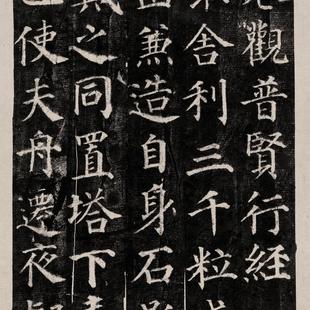 觀普賢行経
舍利三千粒
兼造自身石
之同置塔下
使夫舟遷夜